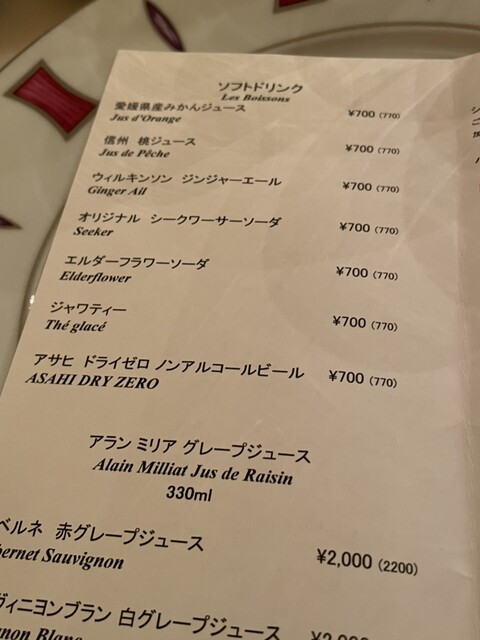 ソフトドリンク
Les Boissons
愛媛県産みかんジュース ¥700 (770)
Jus d'Orange
信州 桃ジュース ¥700 (770)
Jus de Pêche
ウィルキンソン ジンジャーエール ¥700 (770)
Ginger Ail
オリジナル シークワーサーソーダ ¥700 (770)
Seeker
エルダーフラワーソーダ ¥700 (770)
Elderflower
ジャワティー ¥700 (770)
Thé glacé
アサヒ ドライゼロ ノンアルコールビール ¥700 (770)
ASAHI DRY ZERO
アラン ミリア グレープジュース
Alain Milliat Jus de Raisin
330ml
ベルネ 赤グレープジュース
bernet Sauvignon ¥2,000 (2200)
ヴィニヨンブラン 白グレープジュース